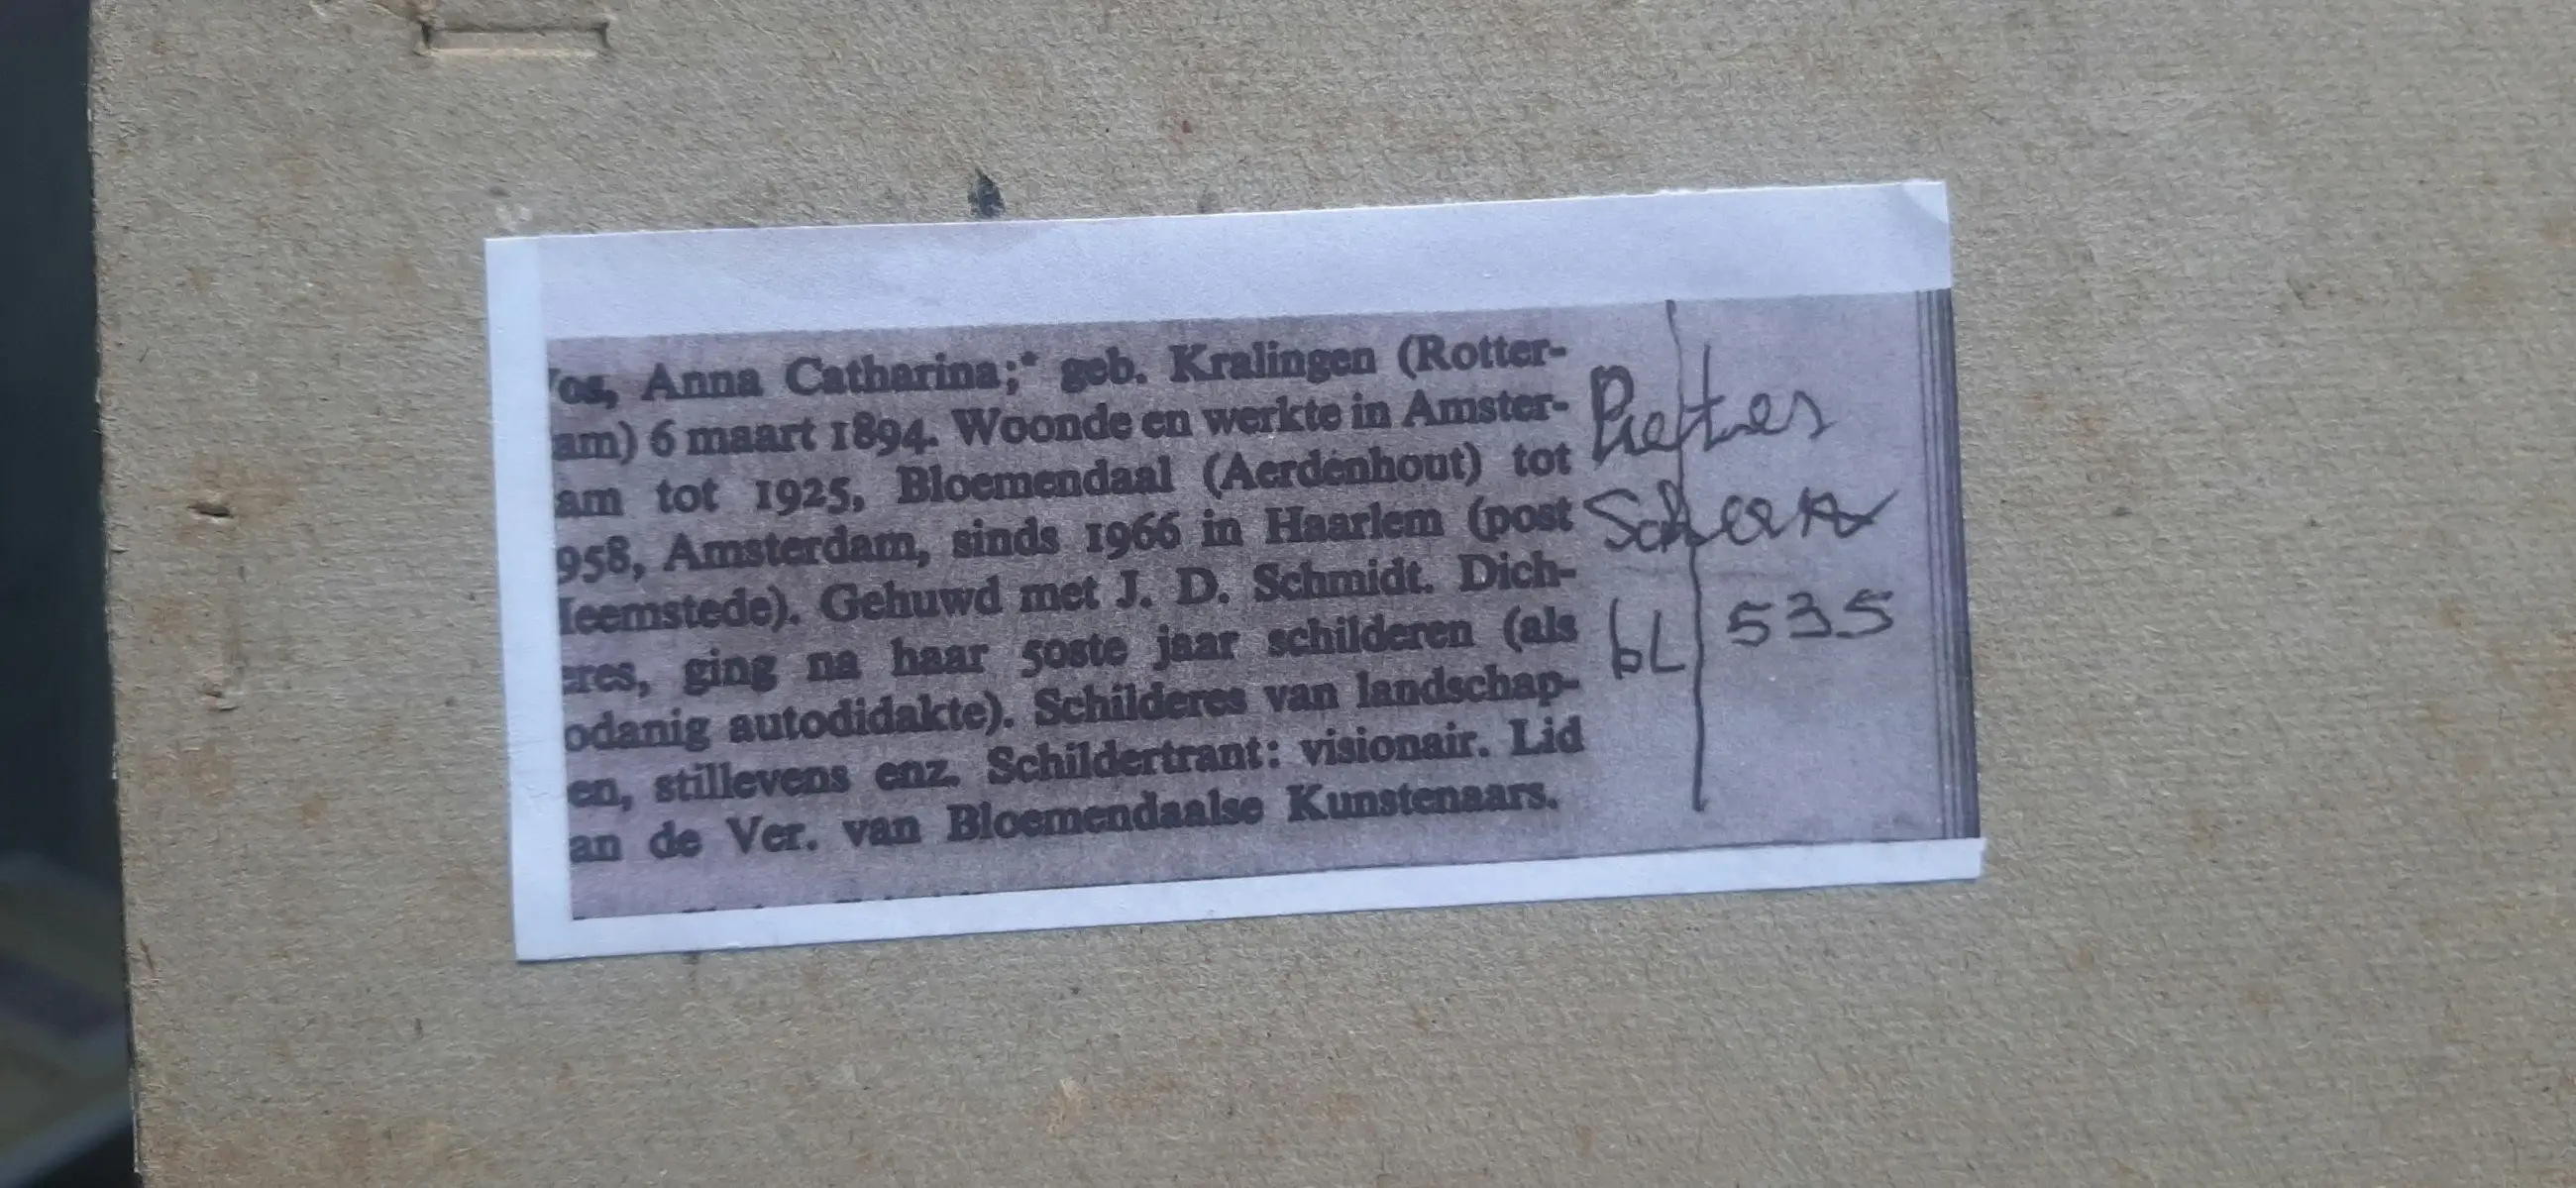 os, Anna Catharina;* geb. Kralingen (Rotter-
am) 6 maart 1894. Woonde en werkte in Amster-
am tot 1925, Bloemendaal (Aerdenhout) tot
958, Amsterdam, sinds 1966 in Haarlem (post
eemstede). Gehuwd met J. D. Schmidt. Dich-
eres, ging na haar 50ste jaar schilderen (als
odanig autodidakte). Schilderes van landschap-
en, stillevens enz. Schildertrant: visionair. Lid
an de Ver. van Bloemendaalse Kunstenaars.
Scheen
bL 535